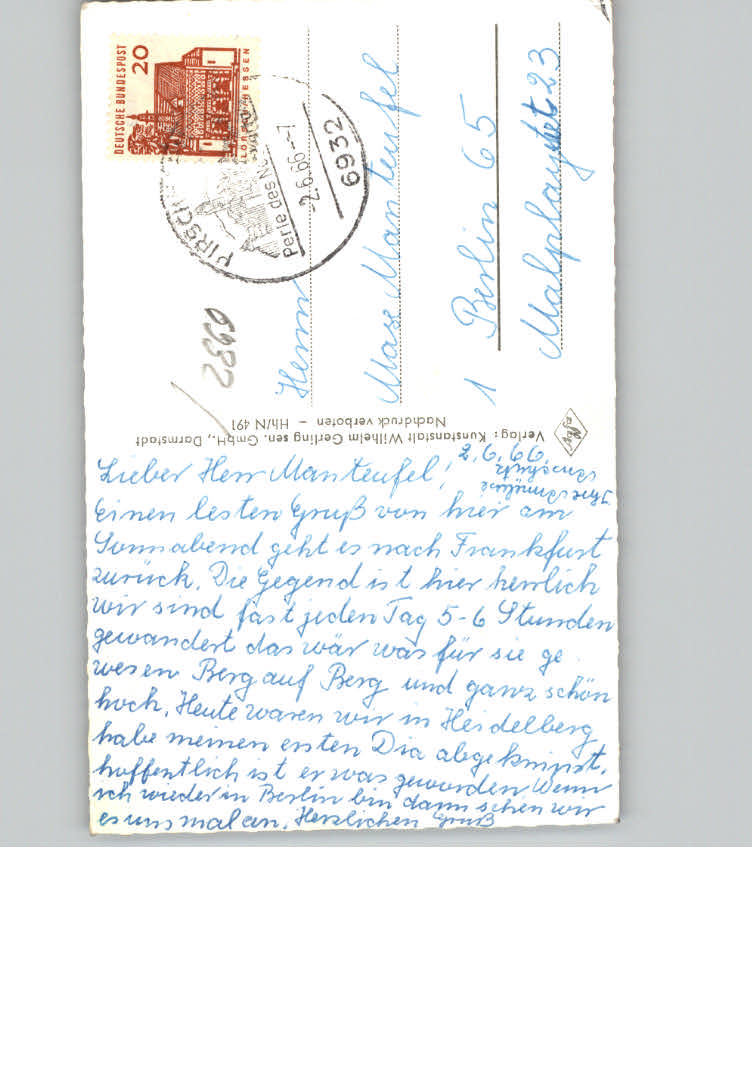 DEUTSCHE BUNDESPOST
20
HIRSCH
Perle des
-2.6.66.--7
6932
6932
Herrn
Max Manteufel
1 Berlin 65
Malplaquet 23
Verlag: Kunstanstalt Wilhelm Gerling sen. GmbH., Darmstadt
Nachdruck verboten – Hh/N 491
Lieber Herr Manteufel!
Einen besten Gruß von hier am
Sonnabend geht es nach Frankfurt
zurück. Die Gegend ist hier herrlich
wir sind fast jeden Tag 5-6 Stunden
gewandert das wär was für sie ge
wesen Berg auf Berg und ganz schön
hoch. Heute waren wir in Heidelberg
habe meinen ersten Dia abgeknipst.
hoffentlich ist er was geworden. Wenn
ich wieder in Berlin bin dann sehen wir
es uns mal an. Herzlichen Gruß
Ihre